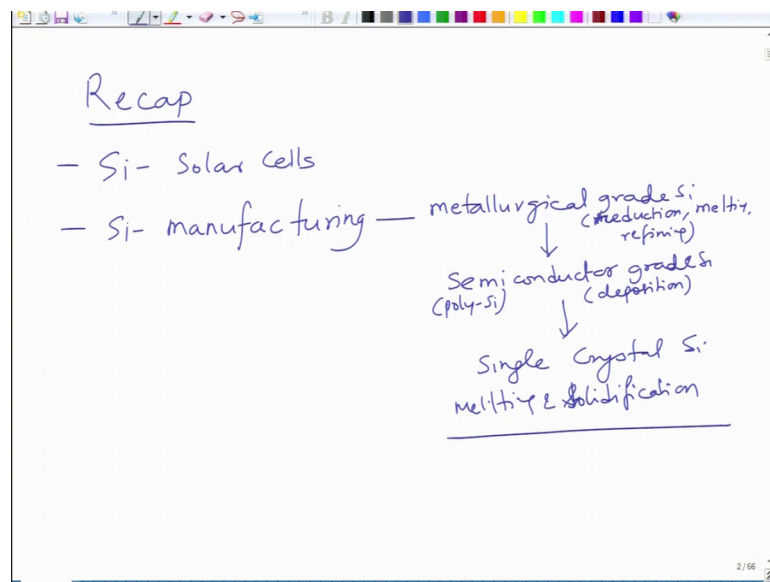 Recap
- Si- Solar Cells
- Si- manufacturing — metallurgical grade Si
(reduction, melting,
refining)
Semiconductor grade Si
(poly-Si) (deposition)
Single Crystal Si
Meltting & Solidification
2 / 66